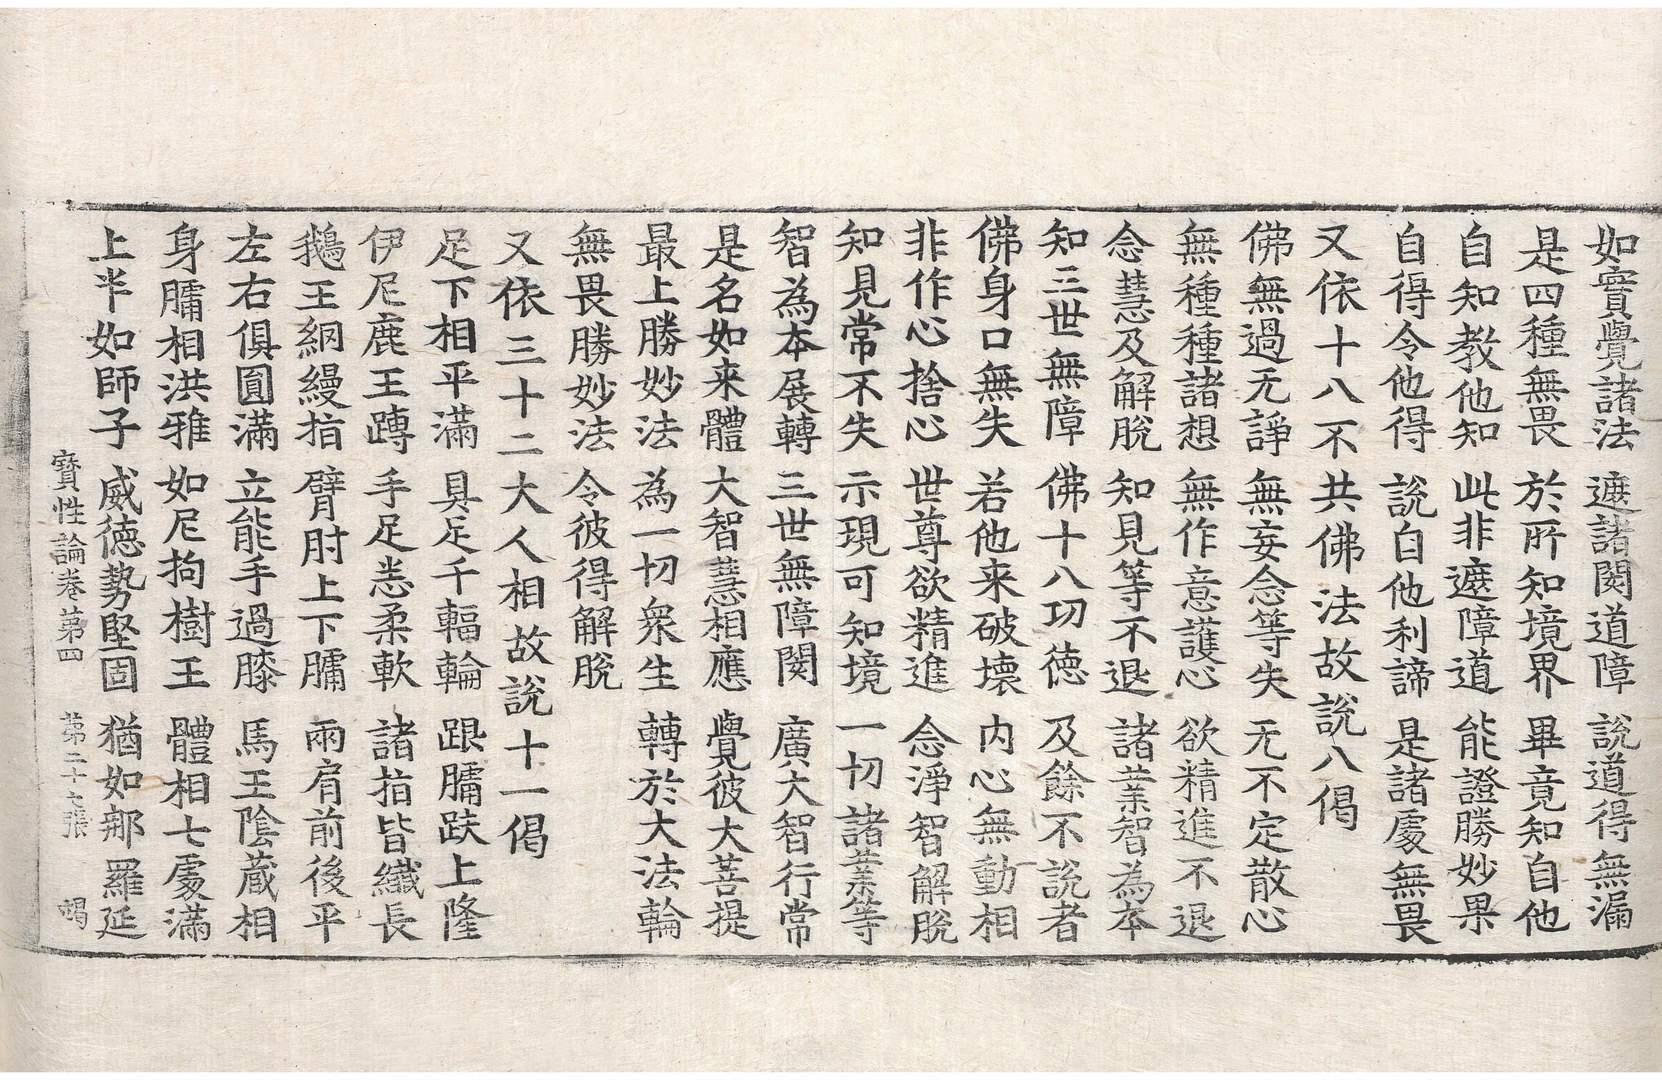 如實覺諸法　遮諸閡道障　說道得無漏
是四種無畏　於所知境界　畢竟知自他
自知教他知　此非遮障道　能證勝妙果
自得令他得　說自他利諦　是諸處無畏
又依十八不共佛法故說八偈
佛無過无諍　無妄念等失　无不定散心
無種種諸想　無作意護心　欲精進不退
念慧及解脫　知見等不退　諸業智為本
知三世無障　佛十八功德　及餘不說者
佛身口無失　若他来破壞　內心無動相
非作心捨心　世尊欲精進　念淨智解脫
知見常不失　示現可知境　一切諸業等
智為本展轉　三世無障閡　廣大智行常
是名如来體　大智慧相應　覺彼大菩提
最上勝妙法　為一切衆生　轉於大法輪
無畏勝妙法　令彼得解脫
又依三十二大人相故說十一偈
足下相平滿　具足千輻輪　跟𦟛趺上隆
伊尼鹿王蹲　手足悉柔軟　諸指皆纖長
鵝王網縵指　臂肘上下𦟛　兩肩前後平
左右俱圓滿　立能手過膝　馬王陰蔵相
身𦟛相洪雅　如尼拘樹王　體相七處滿
上半如師子　威徳勢堅固　猶如那羅延
寶性論卷第四　第二十七張